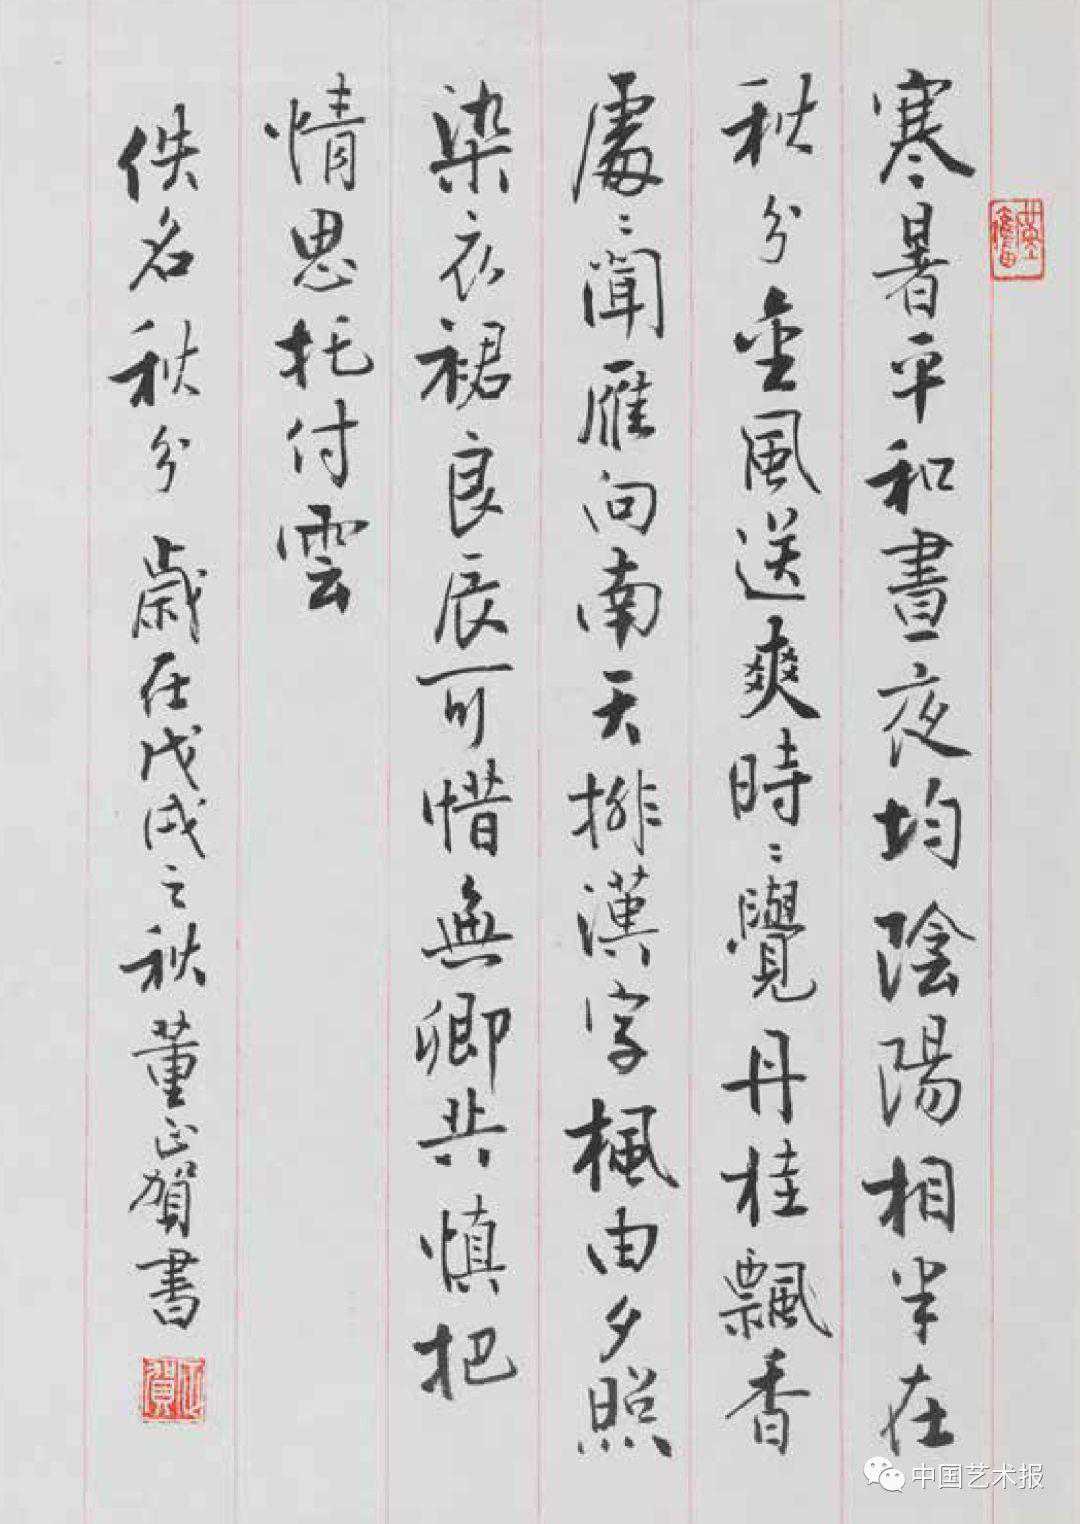 寒暑平和晝夜均陰陽相半在
秋分金風送爽時〻覺丹桂飄香
處〻聞雁向南天排漢字楓由夕照
染衣裙良辰可惜無卿共慎把
情思托付雲
佚名秋分 歲在戊戌之秋董正賀書
正賀
中国艺术报